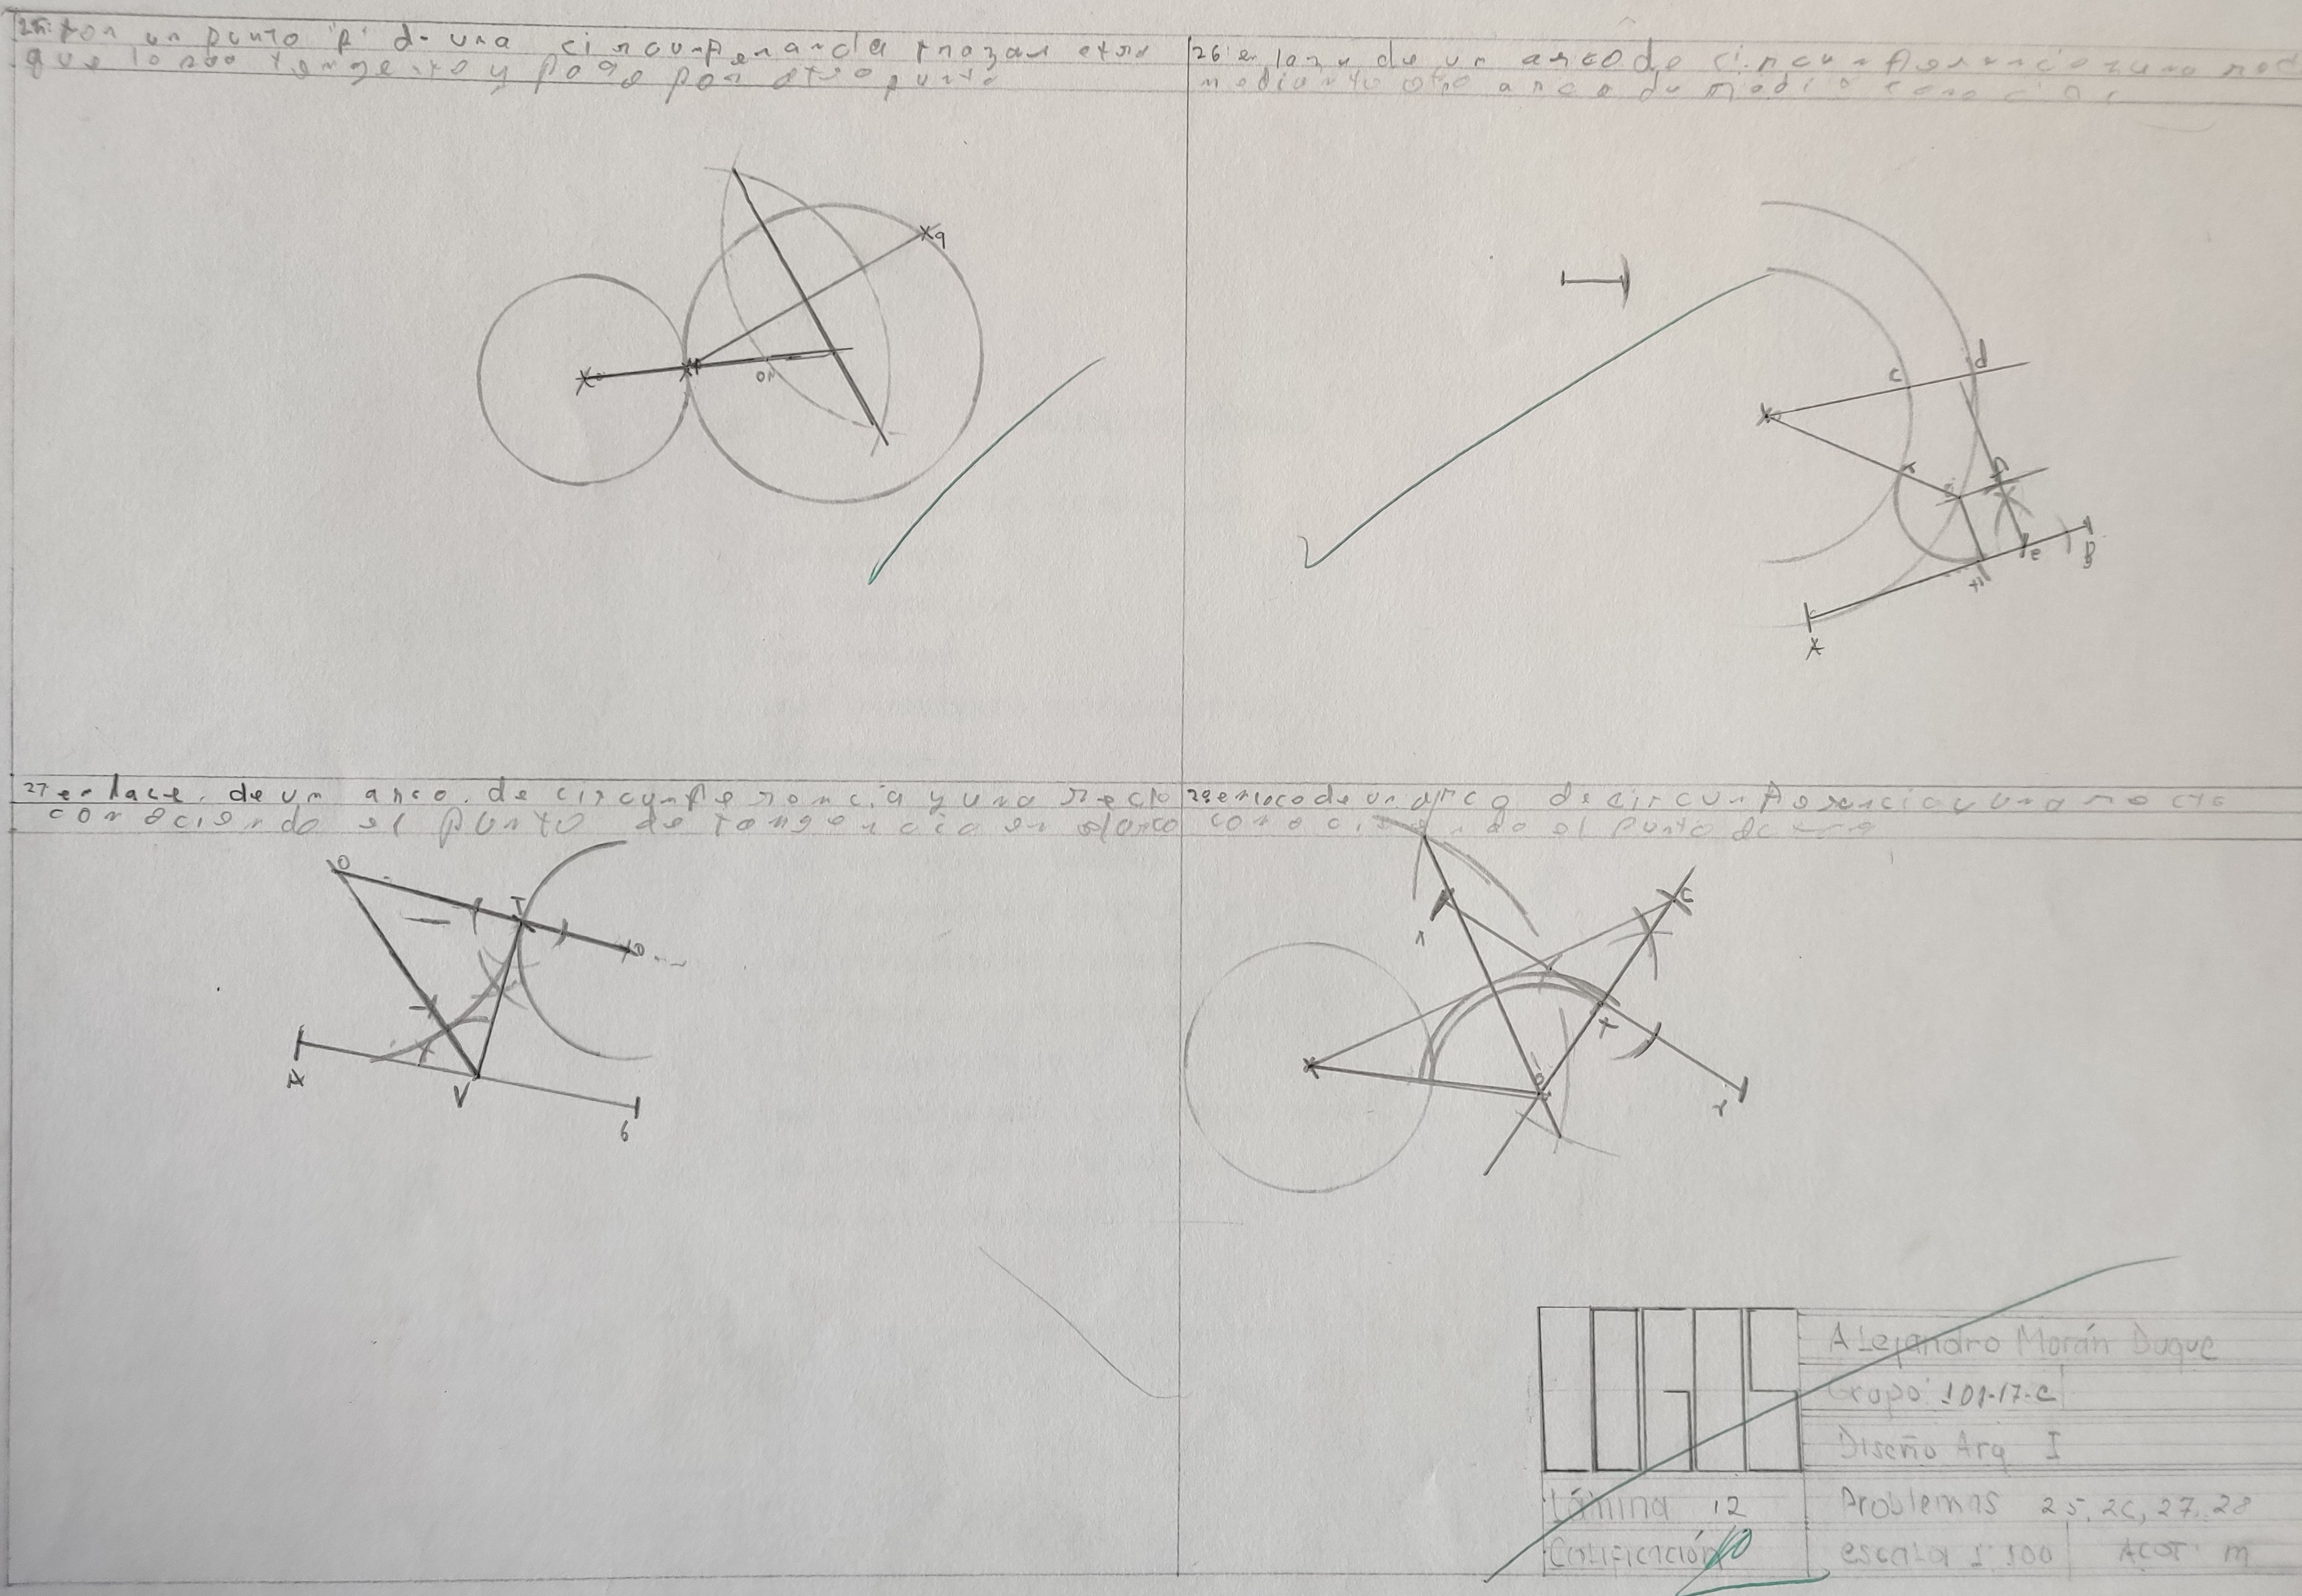 25: Por un punto "P" de una circunferencia trazar otra
que le sea tangente y pase por otro punto
26 enlazar de un arco de circunferencia y una rec
mediante otro arco de radio
q
d
c
B
e
A
27 enlace de un arco de circunferencia y una recta
conociendo el punto de tangencia en el arco
28 enlace de un arco de circunferencia y una recta
conociendo el punto de
O
T
A
V
6
C
1
LOGOS
Alejandro Morán Duque
Grupo 101-17-C
Diseño Arq I
Lámina 12
Problemas 25, 26, 27, 28
Calificación 10
escala 1:100
Acot: m